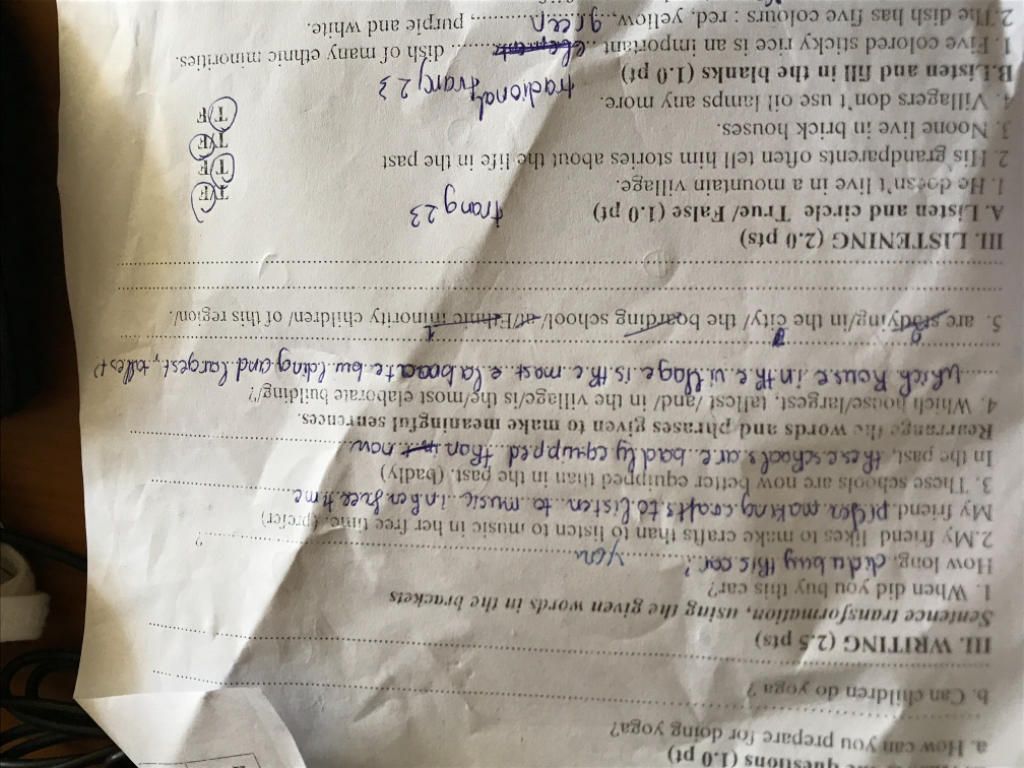 questions (1.0 pt)
a. How can you prepare for doing yoga?
b. Can children do yoga ?
III. WRITING (2.5 pts)
Sentence transformation, using the given words in the brackets
1. When did you buy this car?
How long, did u buy this car? you ?
2.My friend likes to make crafts than to listen to music in her free time. (prefer)
My friend. making crafts to listen to music in her free time
3. These schools are now better equipped than in the past. (badly)
In the past, these schools are badly equipped than now
Rearrange the words and phrases given to make meaningful sentences.
4. Which house/largest, tallest /and/ in the village/is the/most elaborate building/?
which house in the village is the most elaboate building and largest, tallest
5. are studying/in the city/ the boarding school/ at/Ethnic minority children/ of this region/.
III. LISTENING (2.0 pts)
A. Listen and circle True/ False (1.0 pt) trang 23
1. He doesn't live in a mountain village. T/F
2. His grandparents often tell him stories about the life in the past T/F
3. Noone live in brick houses. T/F
4. Villagers don't use oil lamps any more. T/F
B.Listen and fill in the blanks (1.0 pt) tradional, trang 23
1. Five colored sticky rice is an important ........ dish of many ethnic minorities.
2.The dish has five colours : red, yellow, green, purple and white.